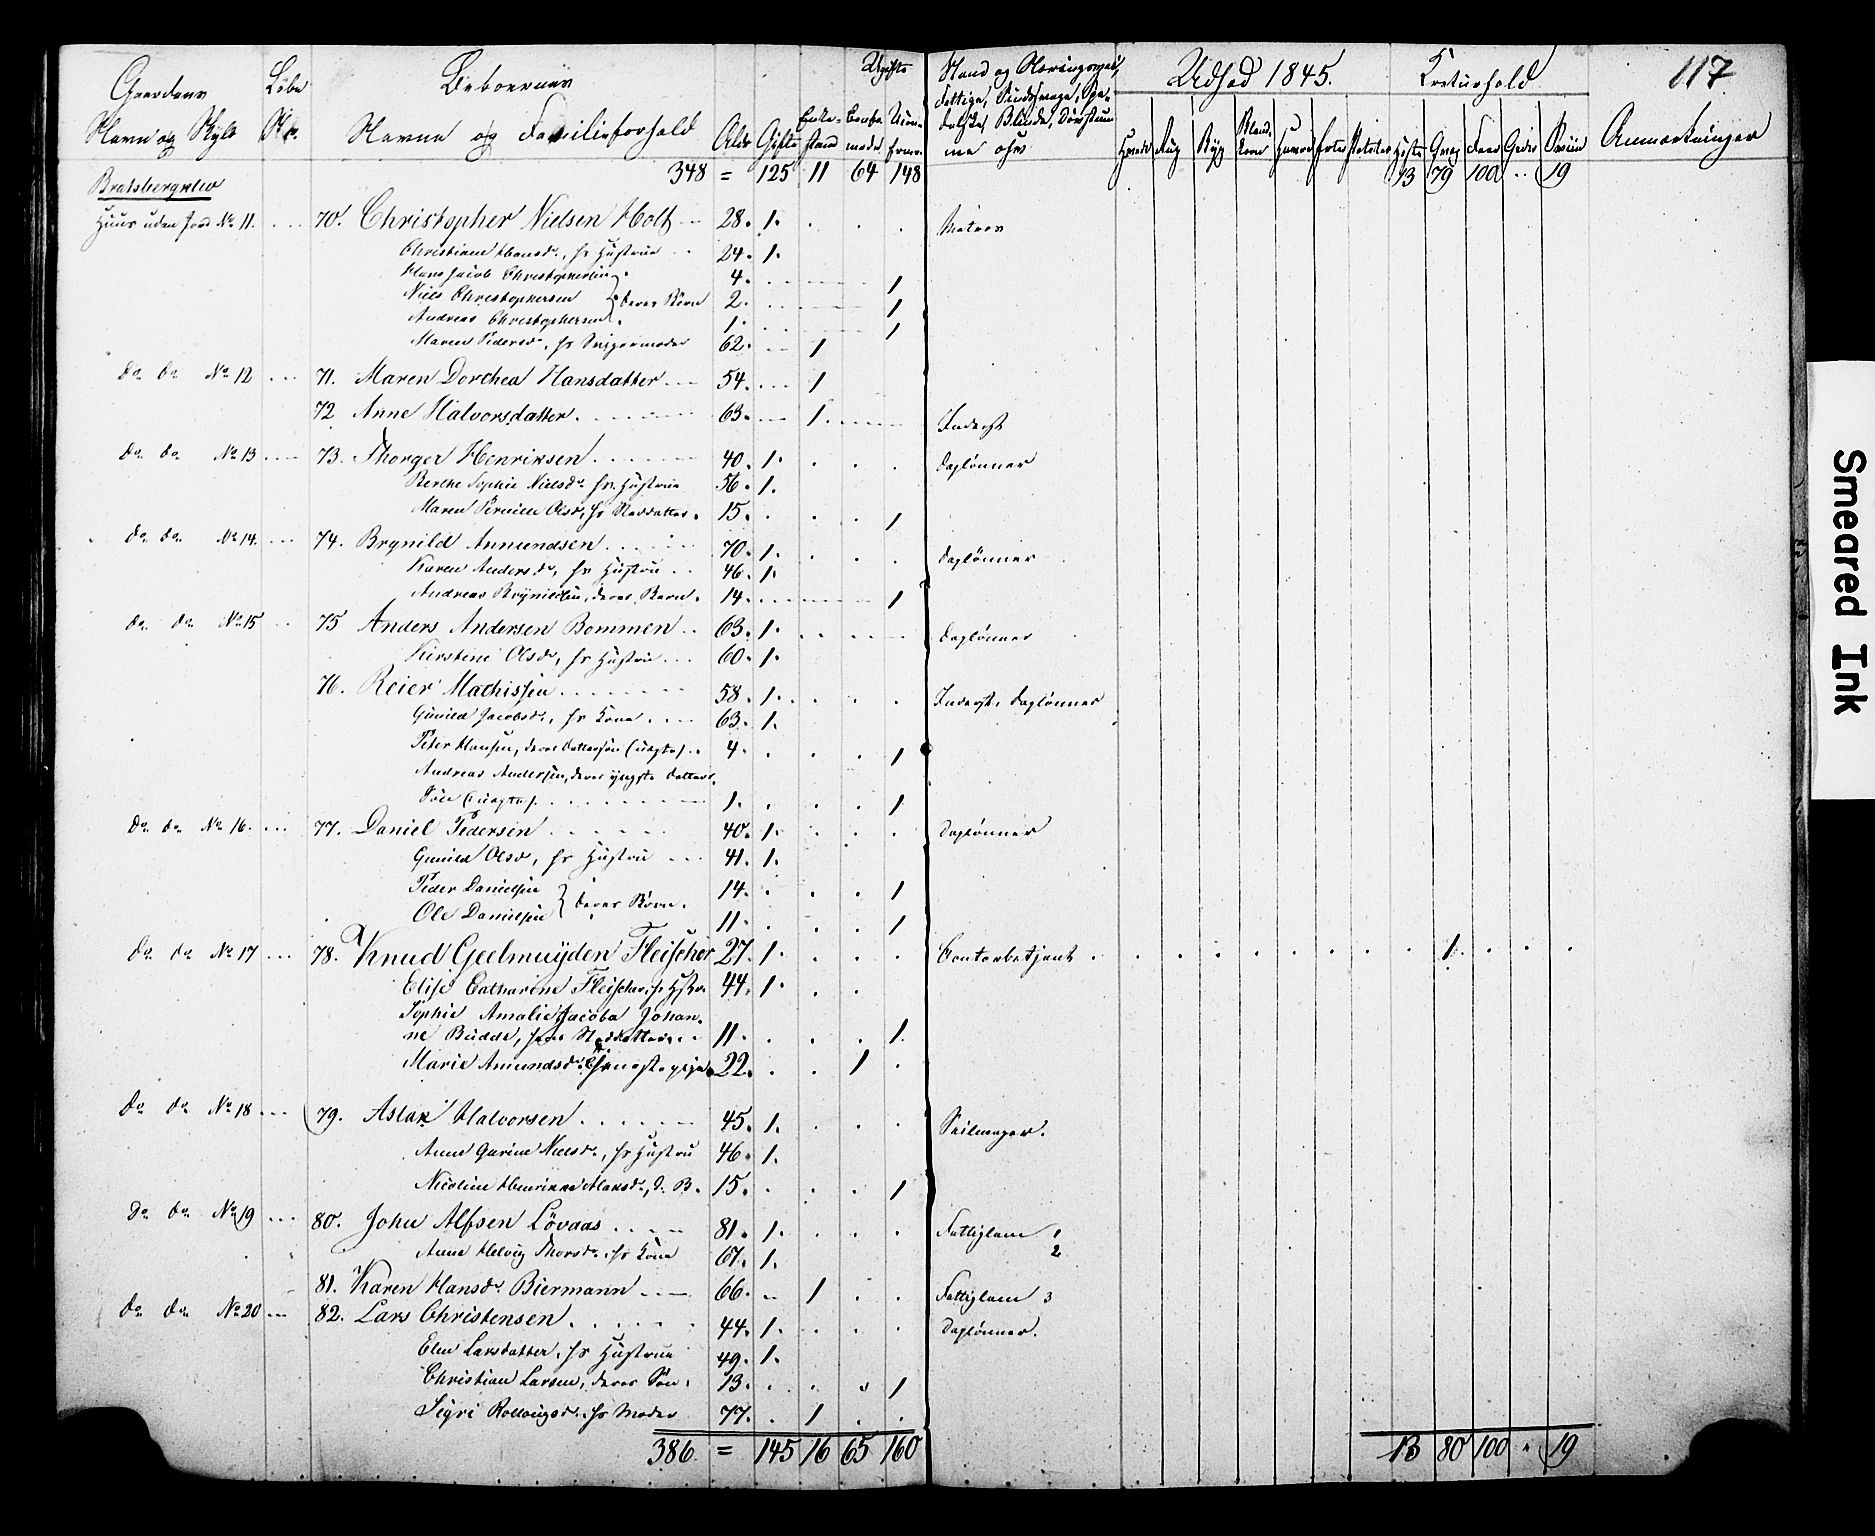 117
Gaardens Navn og Skyld Løbe No. Beboernes Navne og Familieforhold Alder Gifte Enkestand Ugifte
Stand og Næringsvei, Udsæd 1845. Creaturhold Anmærkninger
Byg Heste Faar Sviin
348 = 125 11 64 148 13 79 100 .. 19
Bratsbergklev
Huus uden Jord No 11. 70. Christopher Nielsen Holt 28. 1. Matros
Christiane Hansd., hs Hustrue 24. 1.
Hans Jacob Christophersen 4. 1
Niels Christophersen } deres Børn 2. 1
Andreas Christophersen 1. 1
Maren Pedersd., hs Svigermoder 62. 1
Do Do No 12 71. Maren Dorthea Hansdatter 54. 1
72 Anne Halvorsdatter 63. 1. Inderst
Do Do No 13 73. Thorger Henriksen 40. 1. Daglønner
Berthe Sophie Nielsd. hs Hustrue 56. 1.
Maren Pernille Olsd., hs Steddatter. 15. 1
Do Do No 14. 74. Brynild Anmundsen 70. 1. Daglønner
Karen Andersd., hs Hustru 46. 1.
Andreas Brynildsen, deres Barn. 14. 1
Do Do No 15 75 Anders Andersen Bommen 63. 1. Daglønner
Kirstine Olsd., hs Hustru 60. 1.
76. Reier Mathissen 58. 1. Inderst, Daglønner
Gunild Jacobsd., hs Kone 63. 1.
Peter Hansen, deres Dattersøn (uægte) 4. 1
Andreas Andersen, deres yngste Datters
Søn (uægte) 1. 1
Do Do No 16. 77. Daniel Pedersen 40. 1. Daglønner
Gunild Olsd, hs Hustru 41. 1.
Peder Danielsen } deres Børn. 14. 1
Ole Danielsen 11. 1
Do Do No 17 78. Knud Geelmuyden Fleischer 27. 1. Contorbetjent 1.
Elise Catharine Fleischer, hs Hustr. 44. 1.
Sophie Amalie Jacoba Johan-
ne Budde, Steddatter 11. 1.
Marie Amundsd. Tjenestepige 22. 1
Do Do No 18 79. Aslak Halvorsen 45. 1. Seilmager.
Anne Gurine Nielsd., hs Hustru 46. 1.
Nicoline Henrikke Aslaksd., d. B. 15. 1
Do Do No 19 80. John Alfsen Løvaas 81. 1. Fattiglem 1
Anne Helvig Thorsd. hs Kone 67. 1. 2
81. Karen Hansd. Biermann 66. 1 Fattiglem 3
Do Do No 20 82. Lars Christensen 44. 1. Daglønner.
Elen Larsdatter, hs Hustrue 49. 1.
Christian Larsen, deres Søn. 13. 1
Sigri hs Moder 77. 1
386 = 145 16 65 160 13 80 100 . 19
Smeared Ink